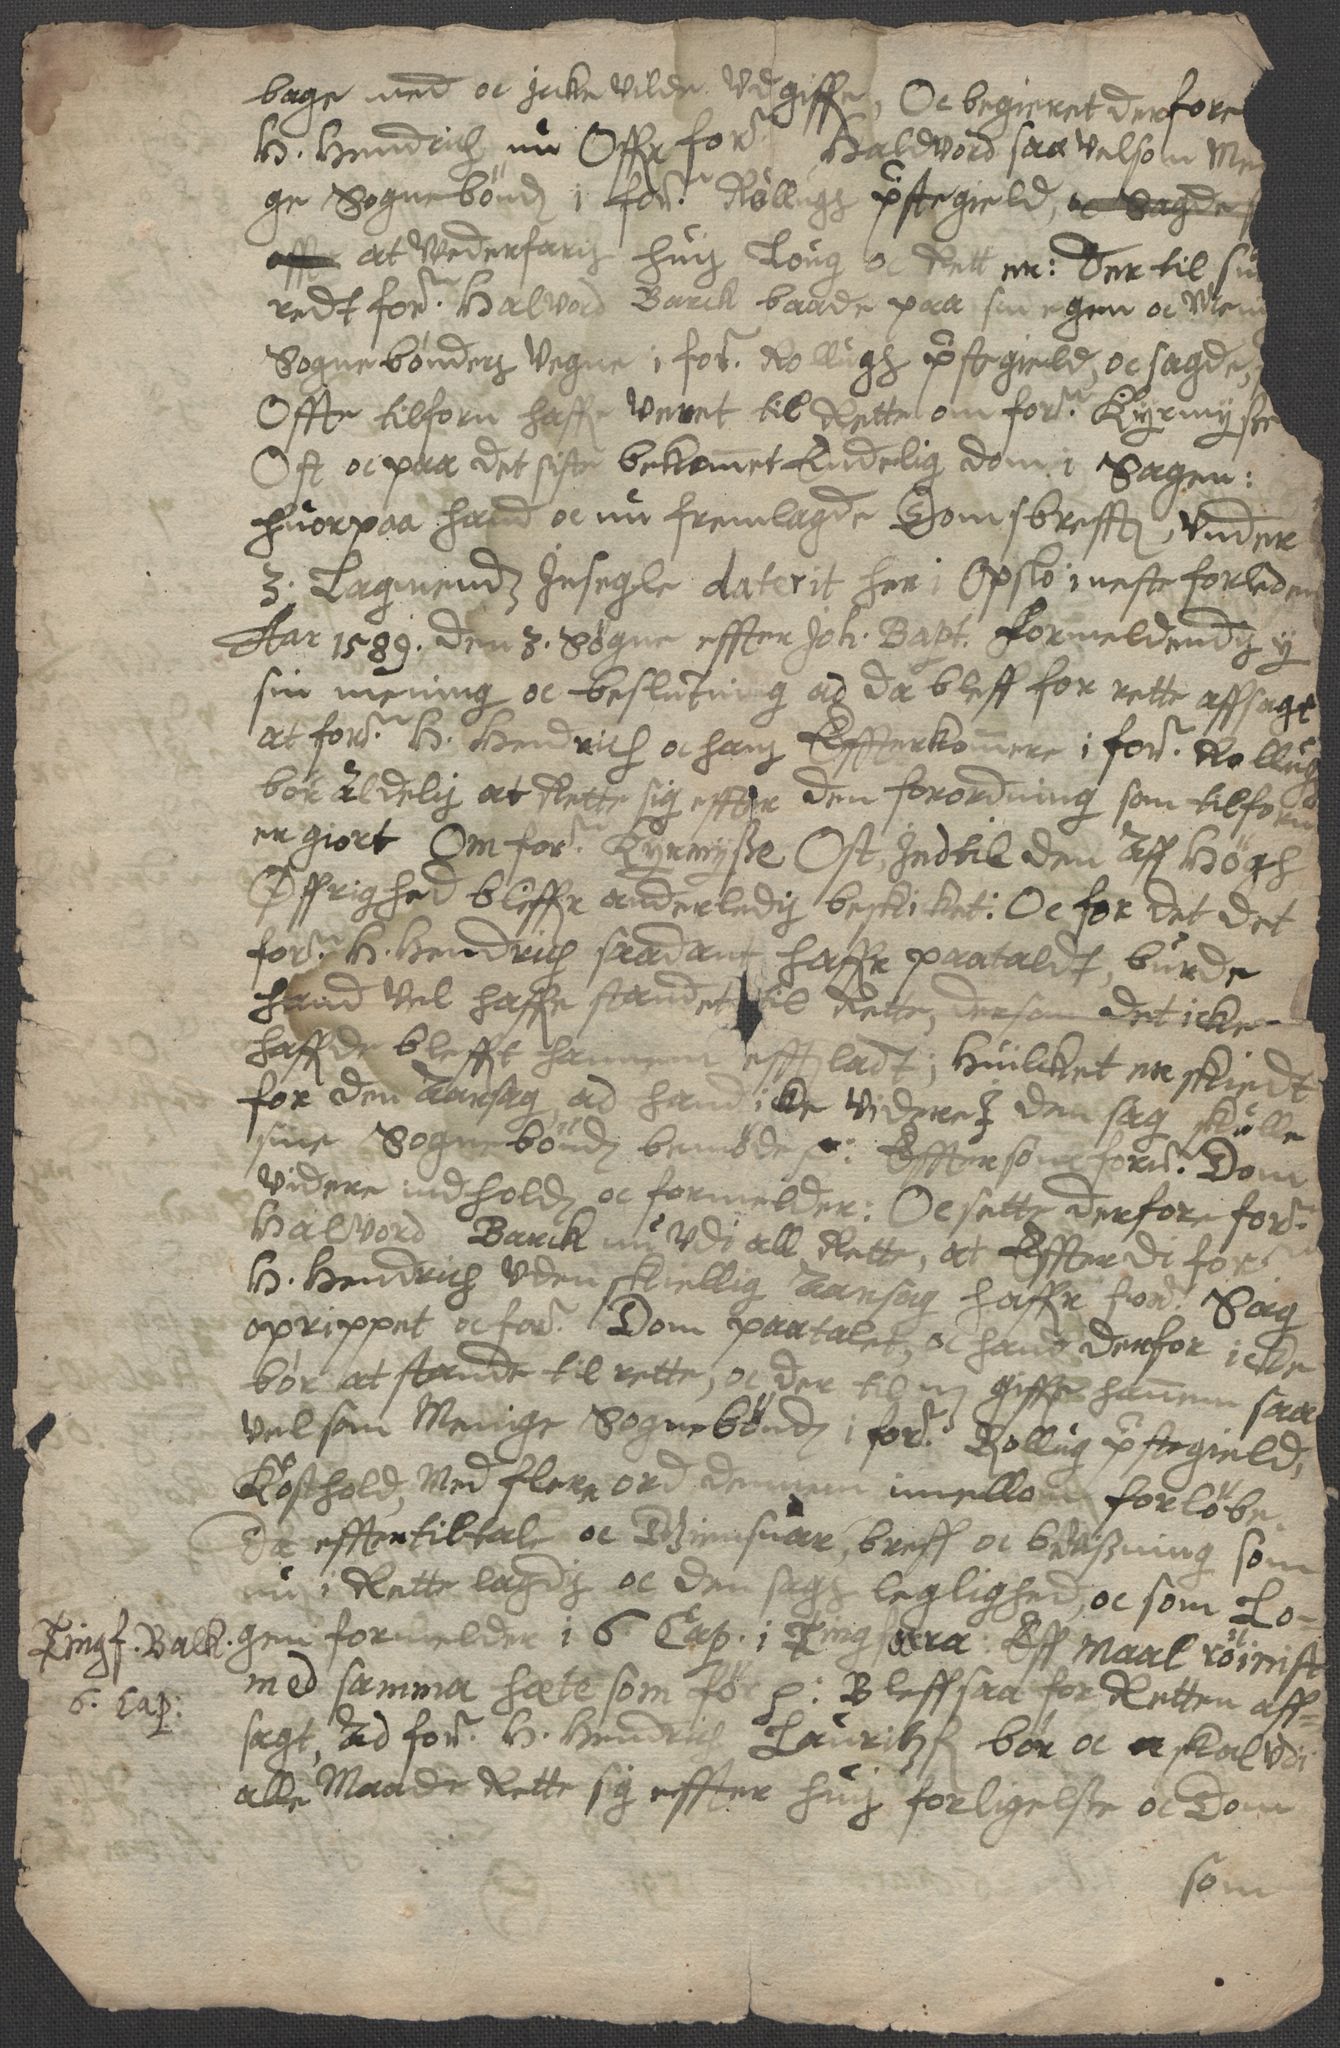 bage med oc icke vilde Vdgiffe, Oc begieret derfore
H. Hendrich nu Offr for:ne Haldvord saa velsom Me
ge Sognebönd i for:ne Rollugs pstegield, oc Sagde
offr at Vederfaris huis Loug oc Rett er: Der til su
redt for:ne Halvord Barck baade paa sin egen oc Men
Sognebönders Vegne i for:ne Rollugs pstegield, oc sagde,
Offte tilforn haffe veret til Rette om for:ne Kyrmysse
Ost oc paa det siste bekommet Endelig dom i Sagen:
huorpaa hand oc nu fremlagde Domsbreff, vnder
3. Lagmends Jnsegle daterit her i Opslo i neste forleden
Aar 1589. den 3. Søgne effter Joh. Bapt. Formeldendis y
sin mening oc beslutning ad da bleff for rette affsagt
at for:ne H. Hendrich oc hans Effterkommere i for:ne Rollug
bör aldelis at Rette sig effter den forordning som tilforn
er giort Om for:ne Kyrmysse Ost, Jndtil den aff Högh
Øffrighed bliffr anderledis beskicket: Oc for det det
for:ne H. Hendrich saadant haffr paataldt, burde
hand vel haffe standet til Rette, dersom det icke
haffde blefft hannem effterladt; huilcket er skiedt
for den aarsag, ad hand icke videre i den sag skulle
sine Sognebönd bemöde p: Effter som for:ne Dom
videre indholds oc formelder: Oc sette derfore for:ne
Halvord Barck nu vdi all Rette, at Effterdi for:ne
H. Hendrich vden skiellig aarsag haffr for:ne Sag
oprippet oc for:ne Dom paatalet, oc hand derfor icke
bör at stande til rette, oc der til mz giffe hannem saa
vel som Menige Sognebönd i for:ne Rollug pstegield,
Kosthold, Med flere ord dennem imellom forlöbe.
Da effter tiltale oc Giensuar, breff oc beuisning som
nu i Rette lagdis oc den sags leglighed, oc som Lo-
gen formelder i 6 Cap. i Tingfara: Eff maal röinist
med samma hæte som för p: Bleff saa for Retten aff-
sagt, Ad for:ne H. Hendrich Lauritzs bör oc skal vdi
alle Maade Rette sig effter huis forligelse oc Dom
som
Tingf. Balk.
6. Cap: